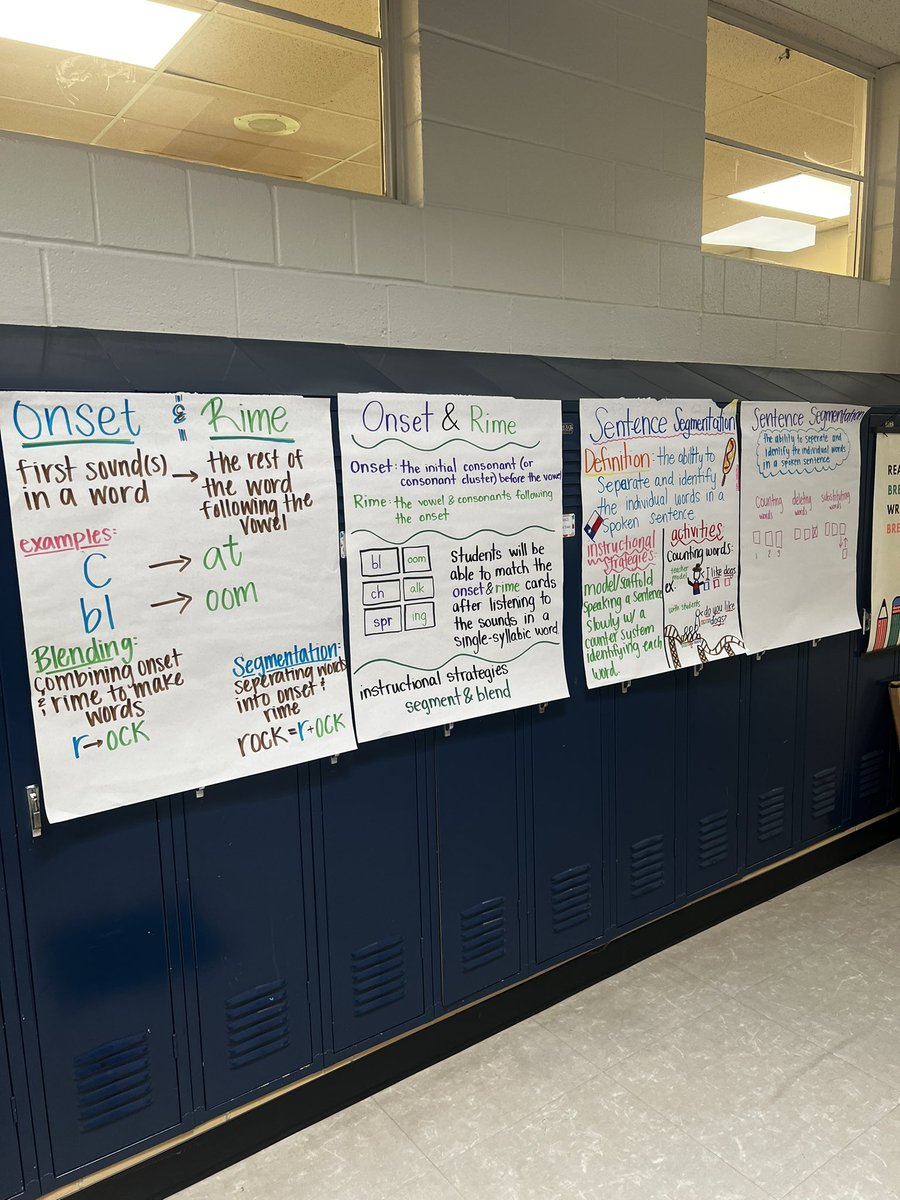 Onset & Rime
first sound(s) → the rest of
in a word the word
following the
vowel
examples:
C → at
bl → oom
Blending:
combining onset
& rime to make
words
r→ock
Segmentation:
seperating words
into onset &
rime
rock=r+ock
Onset & Rime
Onset: the initial consonant (or
consonant cluster) before the vowel
Rime: the vowel & consonants following
the onset
bl oom
ch alk
spr ing
Students will be
able to match the
onset & rime cards
after listening to
the sounds in a
single-syllabic word
instructional strategies
segment & blend
Sentence Segmentation
Definition: the ability to
Separate and identify
the individual words in a
Spoken sentence
instructional
strategies:
model/scaffold
speaking a sentence
slowly w/ a
counter system
identifying each
word.
activities
Counting words:
teacher
model
ex.
I like dogs
with students
do you like
dogs?
Sentence Segmentation
the ability to seperate and
identify the individual words
in a spoken sentence
Counting
words
deleting
words
substituting
words
1 2 3
REA
BRE
WR
BRE